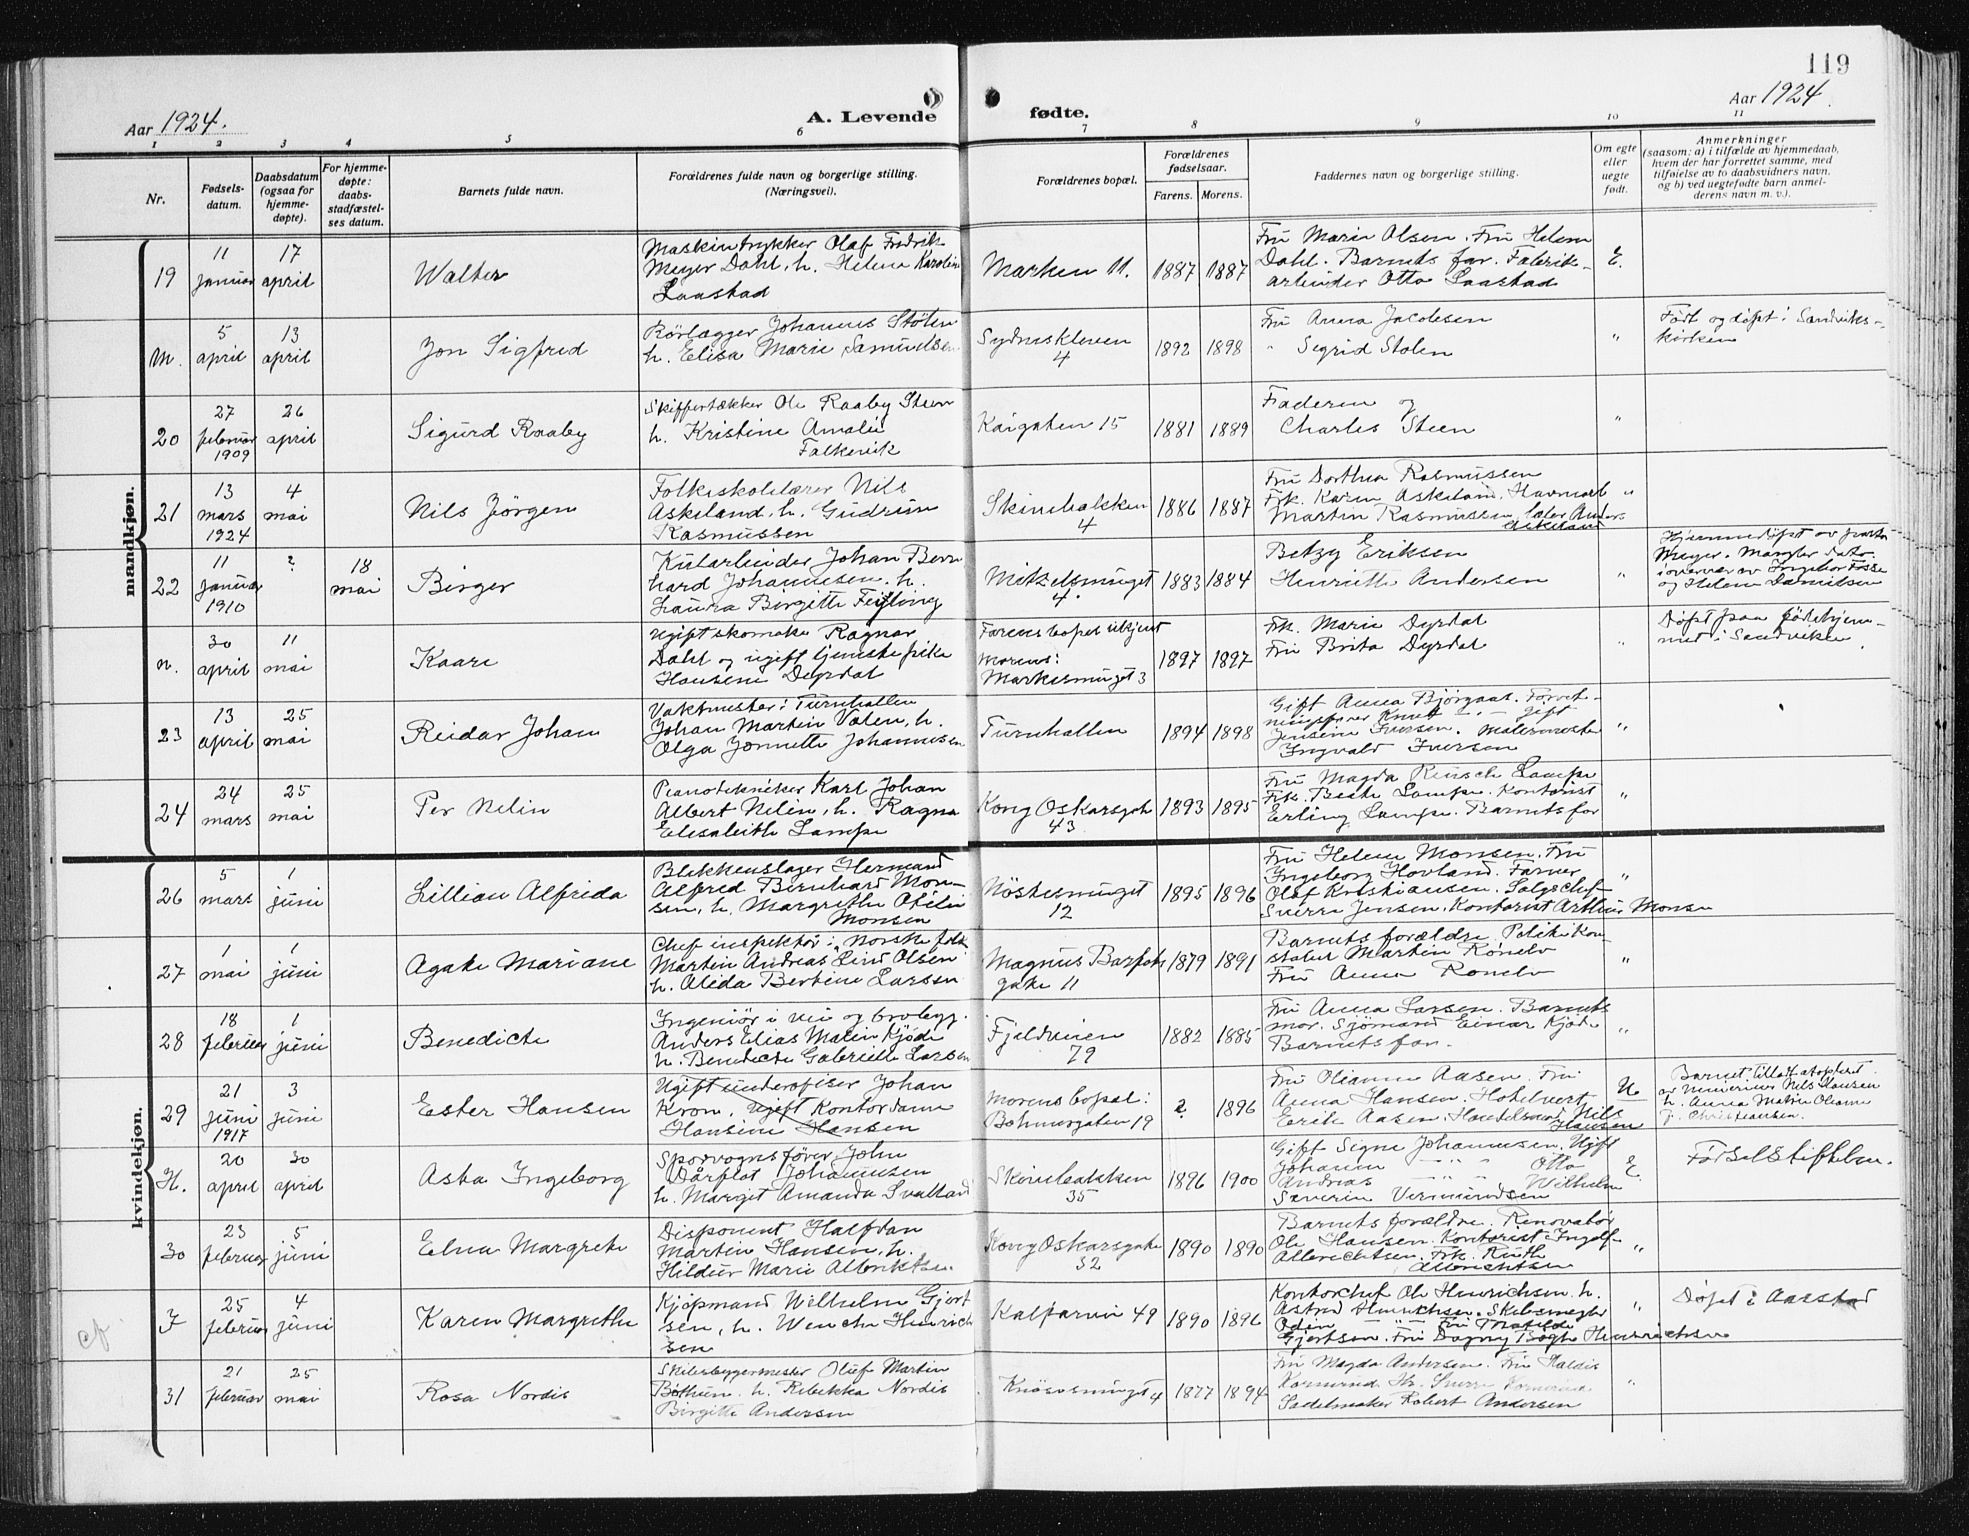 119
Aar 1924.
A. Levende
fødte.
Aar 1924.
1 2 3 4 5 6 7 8 9 10 11
Nr.
Fødsels-
datum.
Daabsdatum
(ogsaa for
hjemme-
døpte).
For hjemme-
døpte:
daabs-
stadfæstel-
ses datum.
Barnets fulde navn.
Forældrenes fulde navn og borgerlige stilling.
(Næringsvei).
Forældrenes bopæl.
Forældrenes
fødselsaar.
Farens. Morens.
Faddernes navn og borgerlige stilling.
Om egte
eller
uegte
født.
Anmerkninger
(saasom: a) i tilfælde av hjemmedaab,
hvem der har forrettet samme, med
tilføielse av to daabsvidners navn,
og b) ved uegtefødte barn anmel-
derens navn m. v.).
mandkjøn.
19
11
januar
17
april
Walter
Maskintrykker Olaf Fredrik
Meyer Dahl, h. Helena Karoline
Laastad
Marken 11.
1887
1887
Fru Marie Olsen. Fru Helene
Dahl. Barnets far. Fabrik-
arbeider Otto Laastad
E.
M.
5
april
13
april
Jon Sigfred
Rørlægger Johannes Stølen
h. Elisa Marie Samuelsen
Sydneskleven
4
1892
1898
Fru Anna Jacobsen
" Sigrid Stolen
"
Født og døpt i Sandviks-
kirken
20
27
februar
1909
26
april
Sigurd Raaby
Skiffertækker Ole Raaby Steen
h. Kristine Amalie
Falkevik
Kaigaten 15
1881
1889
Faderen og
Charles Steen
"
21
13
mars
1924
4
mai
Nils Jörgen
Folkeskolelærer Nils
Askeland, h. Gudrun
Rasmussen
Skivebakken
4
1886
1887
Fru Dorthea Rasmussen
Frk. Karen Askeland.
Martin Rasmussen. Anders
Askeland
"
22
11
januar
1910
?
18
mai
Birger
Kularbeider Johan Bern
hard Johannesen. h.
Laura Birgitte Feifling
4.
1883
1884
Betzy Eriksen
Henriette Andersen
"
Hjemmedøpt av
Meyer. Mangler dato.
i overvær av Ingebor Fosse
og Helene Danielsen
n.
30
april
11
mai
Kaare
Ugift skomaker Ragnar
Dahl og ugift tjenestepike
Hansine Dyrdal
Farens bopel ukjent
Morens:
Markesmuget 3
1897
1897
Frk. Marie Dyrdal
Fru Brita Dyrdal
"
Døpt paa fødehjem-
met i Sandviken.
23
13
april
25
mai
Reidar Johan
Vaktmester i Turnhallen
Johan Martin Valen, h.
Olga Jannette Johannesen
Turnhallen
1894
1898
Gift Anna Bjørgaas. Forret-
ningsfører Knut — " — gift
Jensine Iversen. Malermester
Ingvald Iversen
"
24
24
mars
25
mai
Per Nelin
Pianotekniker Karl Johan
Albert Nelin, h. Ragna
Elisabeth Lampe
Kong Oskarsgate
43
1893
1895
Fru Magda Reusch Lampe
Frk. Beate Lampe. Kontorist
Erling Lampe. Barnets far
"
kvindekjøn.
26
5
mars
1
juni
Lillian Alfrida
Blikkenslager Hermand
Alfred Bernhard Mon-
sen, h. Margrethe Otilie
Monsen
Nöstesmuget
12
1895
1896
Fru Helene Monsen. Fru
Ingeborg Hovland. Farver
Olaf Kristiansen. Salgschef
Sverre Jensen. Kontorist Arthur Monsen
"
27
1
mai
1
juni
Agate Mariane
Chef inspektør i Norske folk
Martin Andreas Lind Olsen
h. Alida Bertine Larsen
Magnus Barfots
gate 11
1879
1891
Barnets forældre. Politikon-
stabel Martin Rønelv
Fru Anna Ronelv
"
28
18
februar
1
juni
Benedicte
Ingeniør i vei og brobygg.
Anders Elias Matin Kjöde
h. Benedicte Gabrielle Larsen
Fjeldveien
79
1882
1885
Fru Anna Larsen. Barnets
mor. Sjömand Einar Kjöde
Barnets far.
"
29
21
juni
1917
3
juni
Ester Hansen
Ugift underofiser Johan
Kron. Ugift Kontordame
Hansine Hansen
Morens bopæl:
Bohmergaten 19
?
1896
Fru Olianne Aasen. Fru
Anna Hansen. Hotelvert
Erik Aasen. Handelsmand Nils
Hansen
U
Barnet tillatt adoptert
av Nils Hansen
h. Anna Matea Oleanne
f. Christiansen.
H.
20
april
30
april
Asta Ingeborg
Sporvognsfører John
Dårflot Johannesen
h. Margit Amanda Svalland
Skivebakken
35
1896
1900
Gift Signe Johannesen. Ugift
Johanne — " — " Otto
Andreas — " — " Wilhelm
Severin Vermundsen
E.
Fødselstiftelsen.
30
23
februar
5
juni
Elna Margrete
Disponent Halfdan
Martin Hansen, h.
Hildur Marie Albriktsen
Kong Oskarsgate
32
1890
1890
Barnets forældre. Renovatør
Ole Hansen. Kontorist Ingolf
Albrechtsen. Frk. Ruth
Albrichtsen
"
cf.
F
25
februar
4
juni
Karen Margrethe
Kjøpmand Wilhelm Gjert
sen, h. Wencke Hinrich
sen
Kalfarvei 49
1890
1896
Kontorchef Ole Hinrichsen h.
Astrid Hinrichsen. Skibsmegler
Odin — " — Fru Mathilde
Gjertsen. Fru Dagny Bøgh Hinrichsen
"
Døpt i Aarstad
31
21
februar
25
mai
Rosa Nordis
Skibsbyggermester Oluf Martin
Bøthun. h. Rebekka Nordis
Birgitte Andersen
Knösesmuget 4
1877
1894
Fru Magda Andersen. Fru Haldis
Sadelmaker Robert Andersen
"